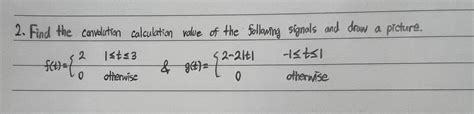 2. Find the convolution calculation value of the following signals and draw a picture.
f(t) = { 2 1≤t≤3 & g(t) = { 2-2|t| -1≤t≤1
0 otherwise 0 otherwise